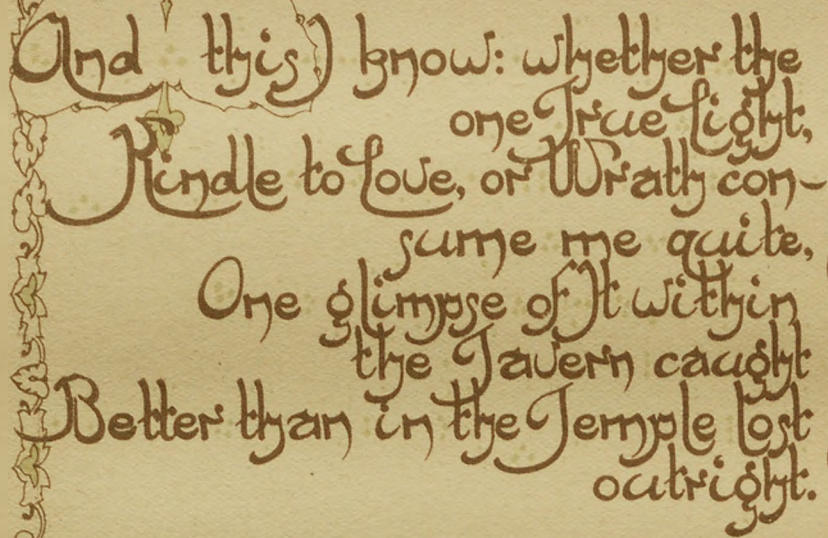 And this I know: whether the
one True Light,
Kindle to Love, or Wrath con-
sume me quite,
One glimpse of It within
the Tavern caught
Better than in the Temple lost
outright.